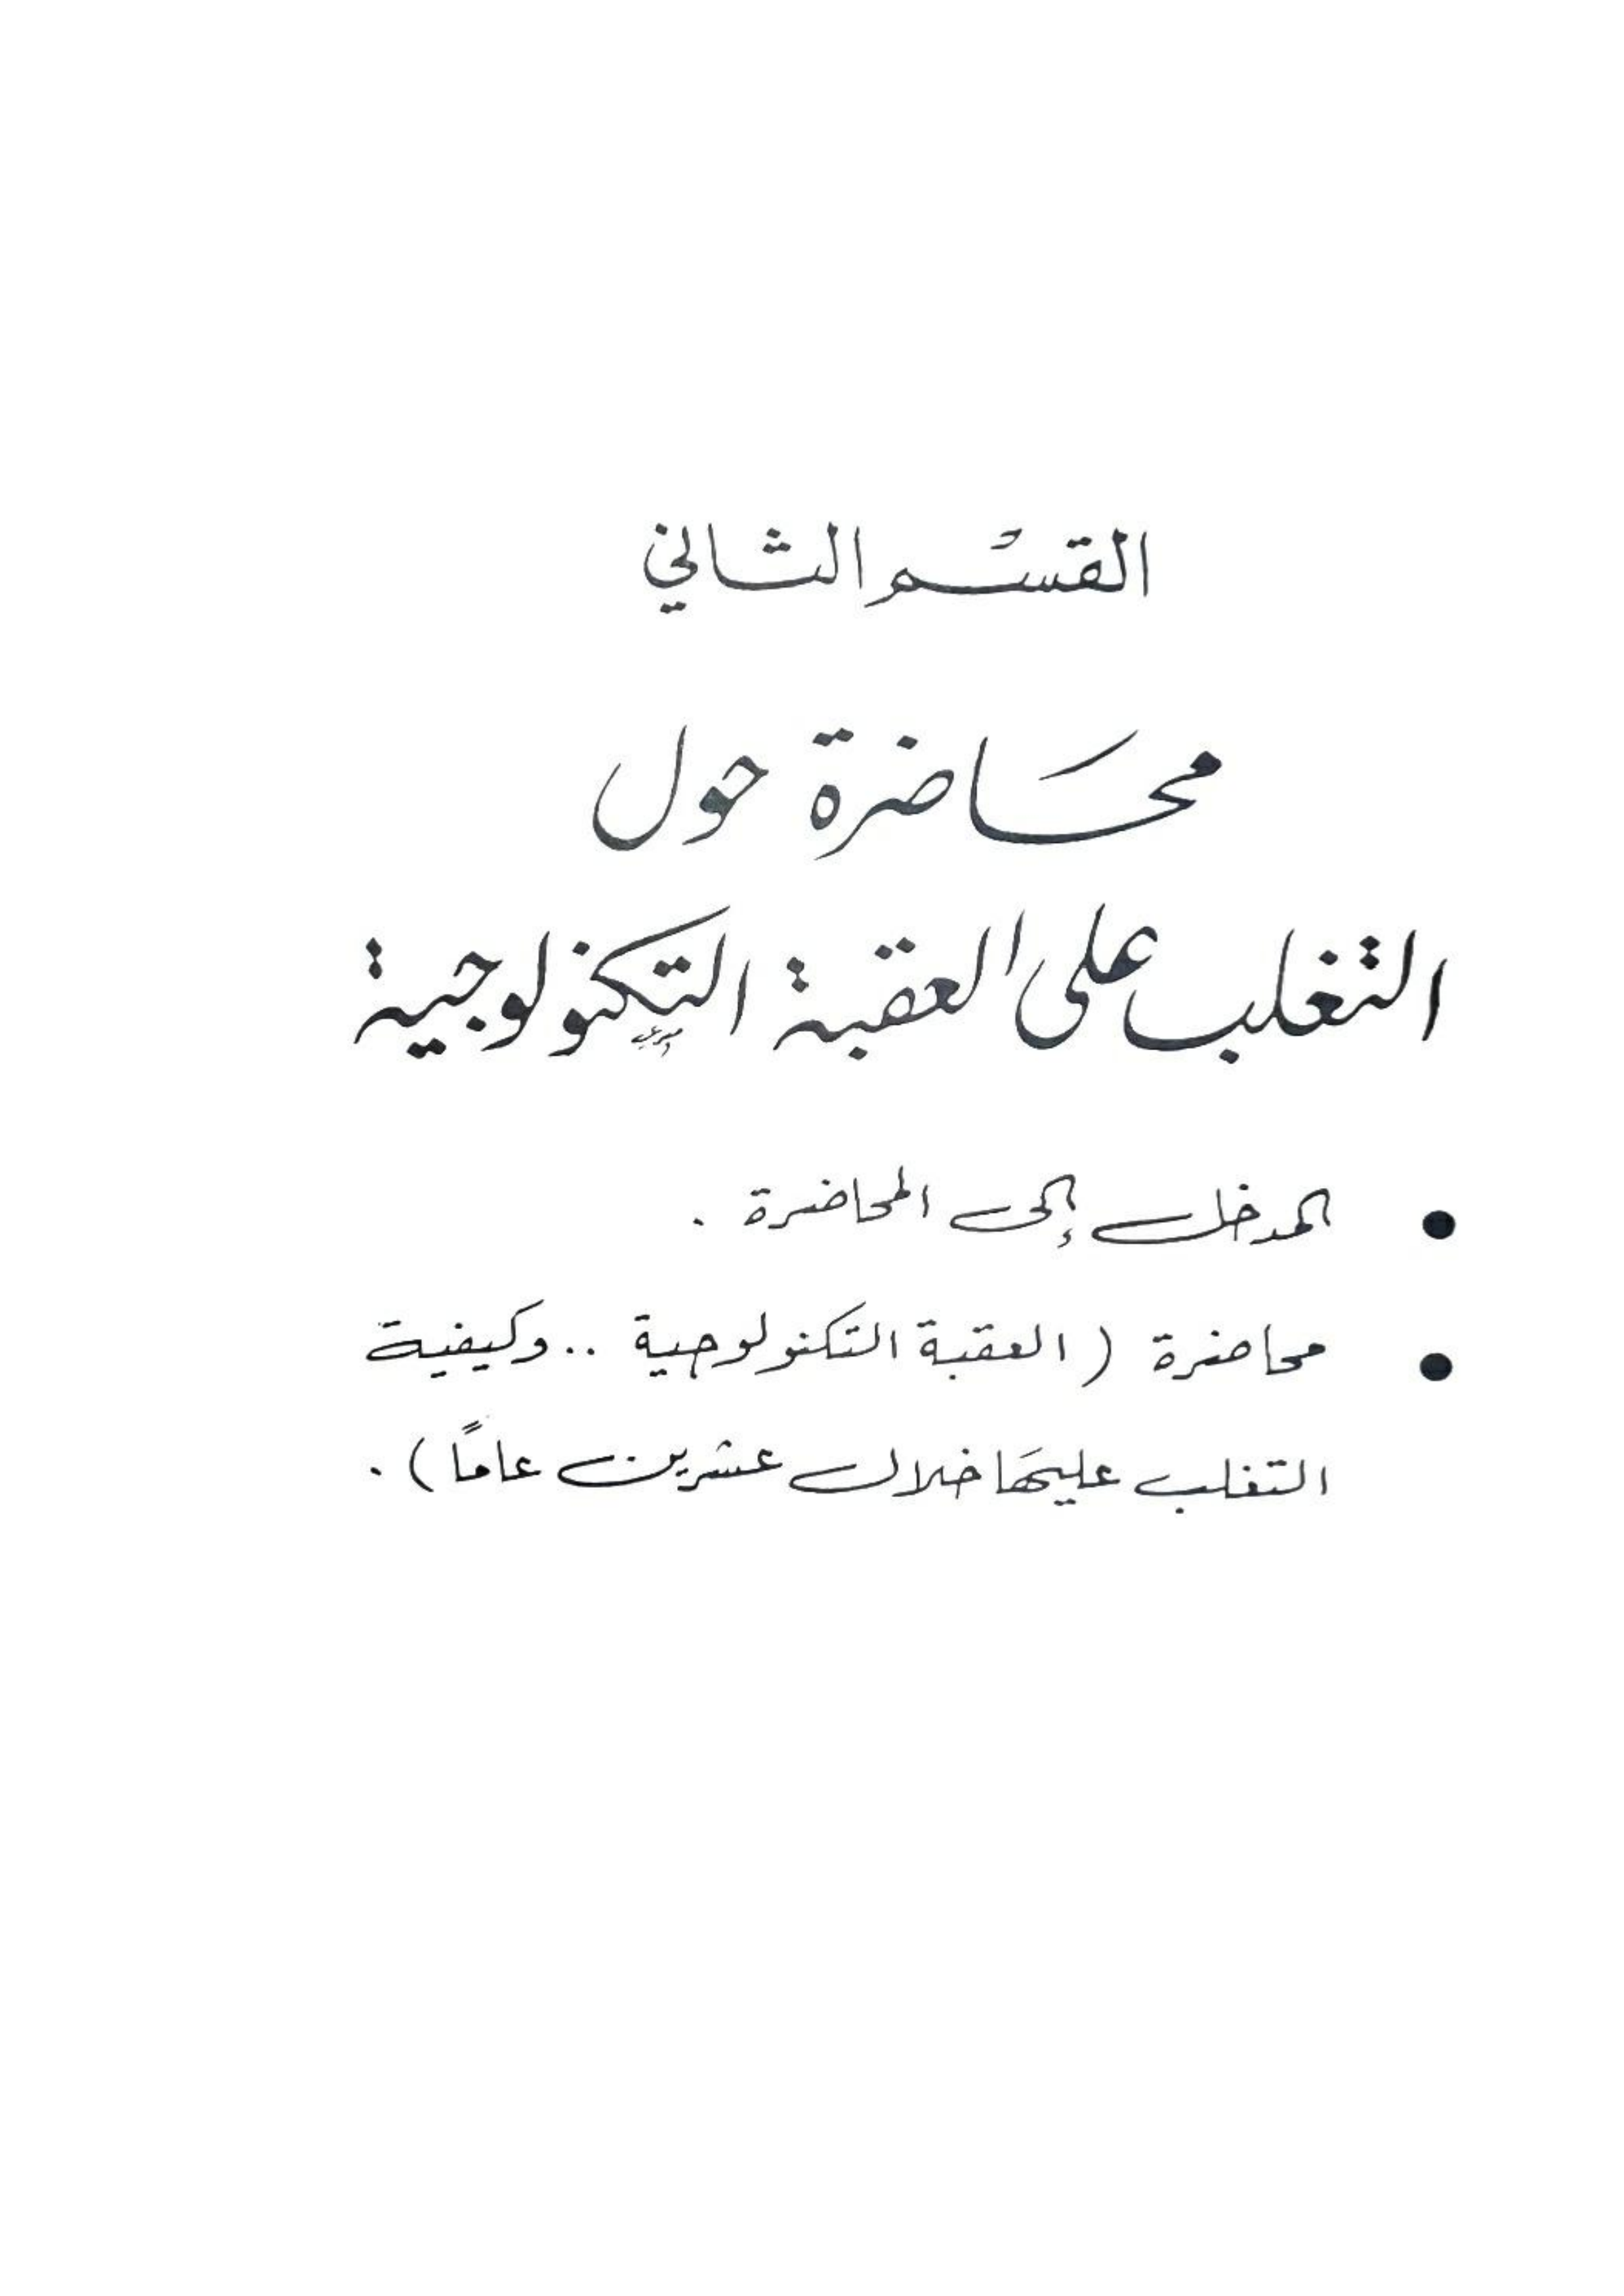 القسْم الثاني
محَاضرة حول
التغلب على العقبة التكنولوجية
● المدخل إلى المحاضرة .
● محاضرة ( العقبة التكنولوجية .. وكيفية
التغلب عليهَا خلال عشرين عاماً ) .